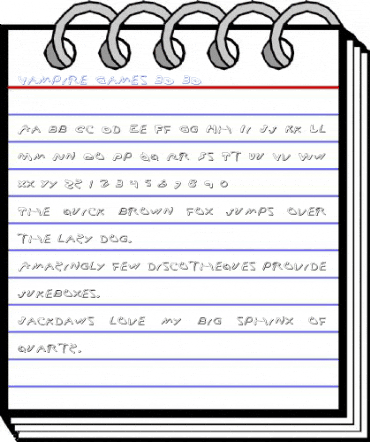 VAMPIRE GAMES 3D 3D
AA BB CC DD EE FF GG HH II JJ KK LL
MM NN OO PP QQ RR SS TT UU VV WW
XX YY ZZ 1 2 3 4 5 6 7 8 9 0
THE QUICK BROWN FOX JUMPS OVER
THE LAZY DOG.
AMAZINGLY FEW DISCOTHEQUES PROVIDE
JUKEBOXES.
JACKDAWS LOVE MY BIG SPHINX OF
QUARTZ.